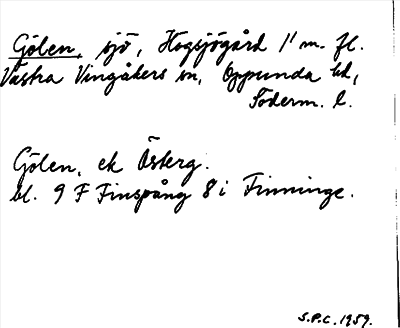 Gölen, sjö, Hogsjögård 1/ m. fl.
Västra Vingåkers sn, Oppunda hd,
Söderm. l.
Gölen, ek Österg.
bl. 9 F Finspång 8 i Finninge.
S.P.C. 1959.